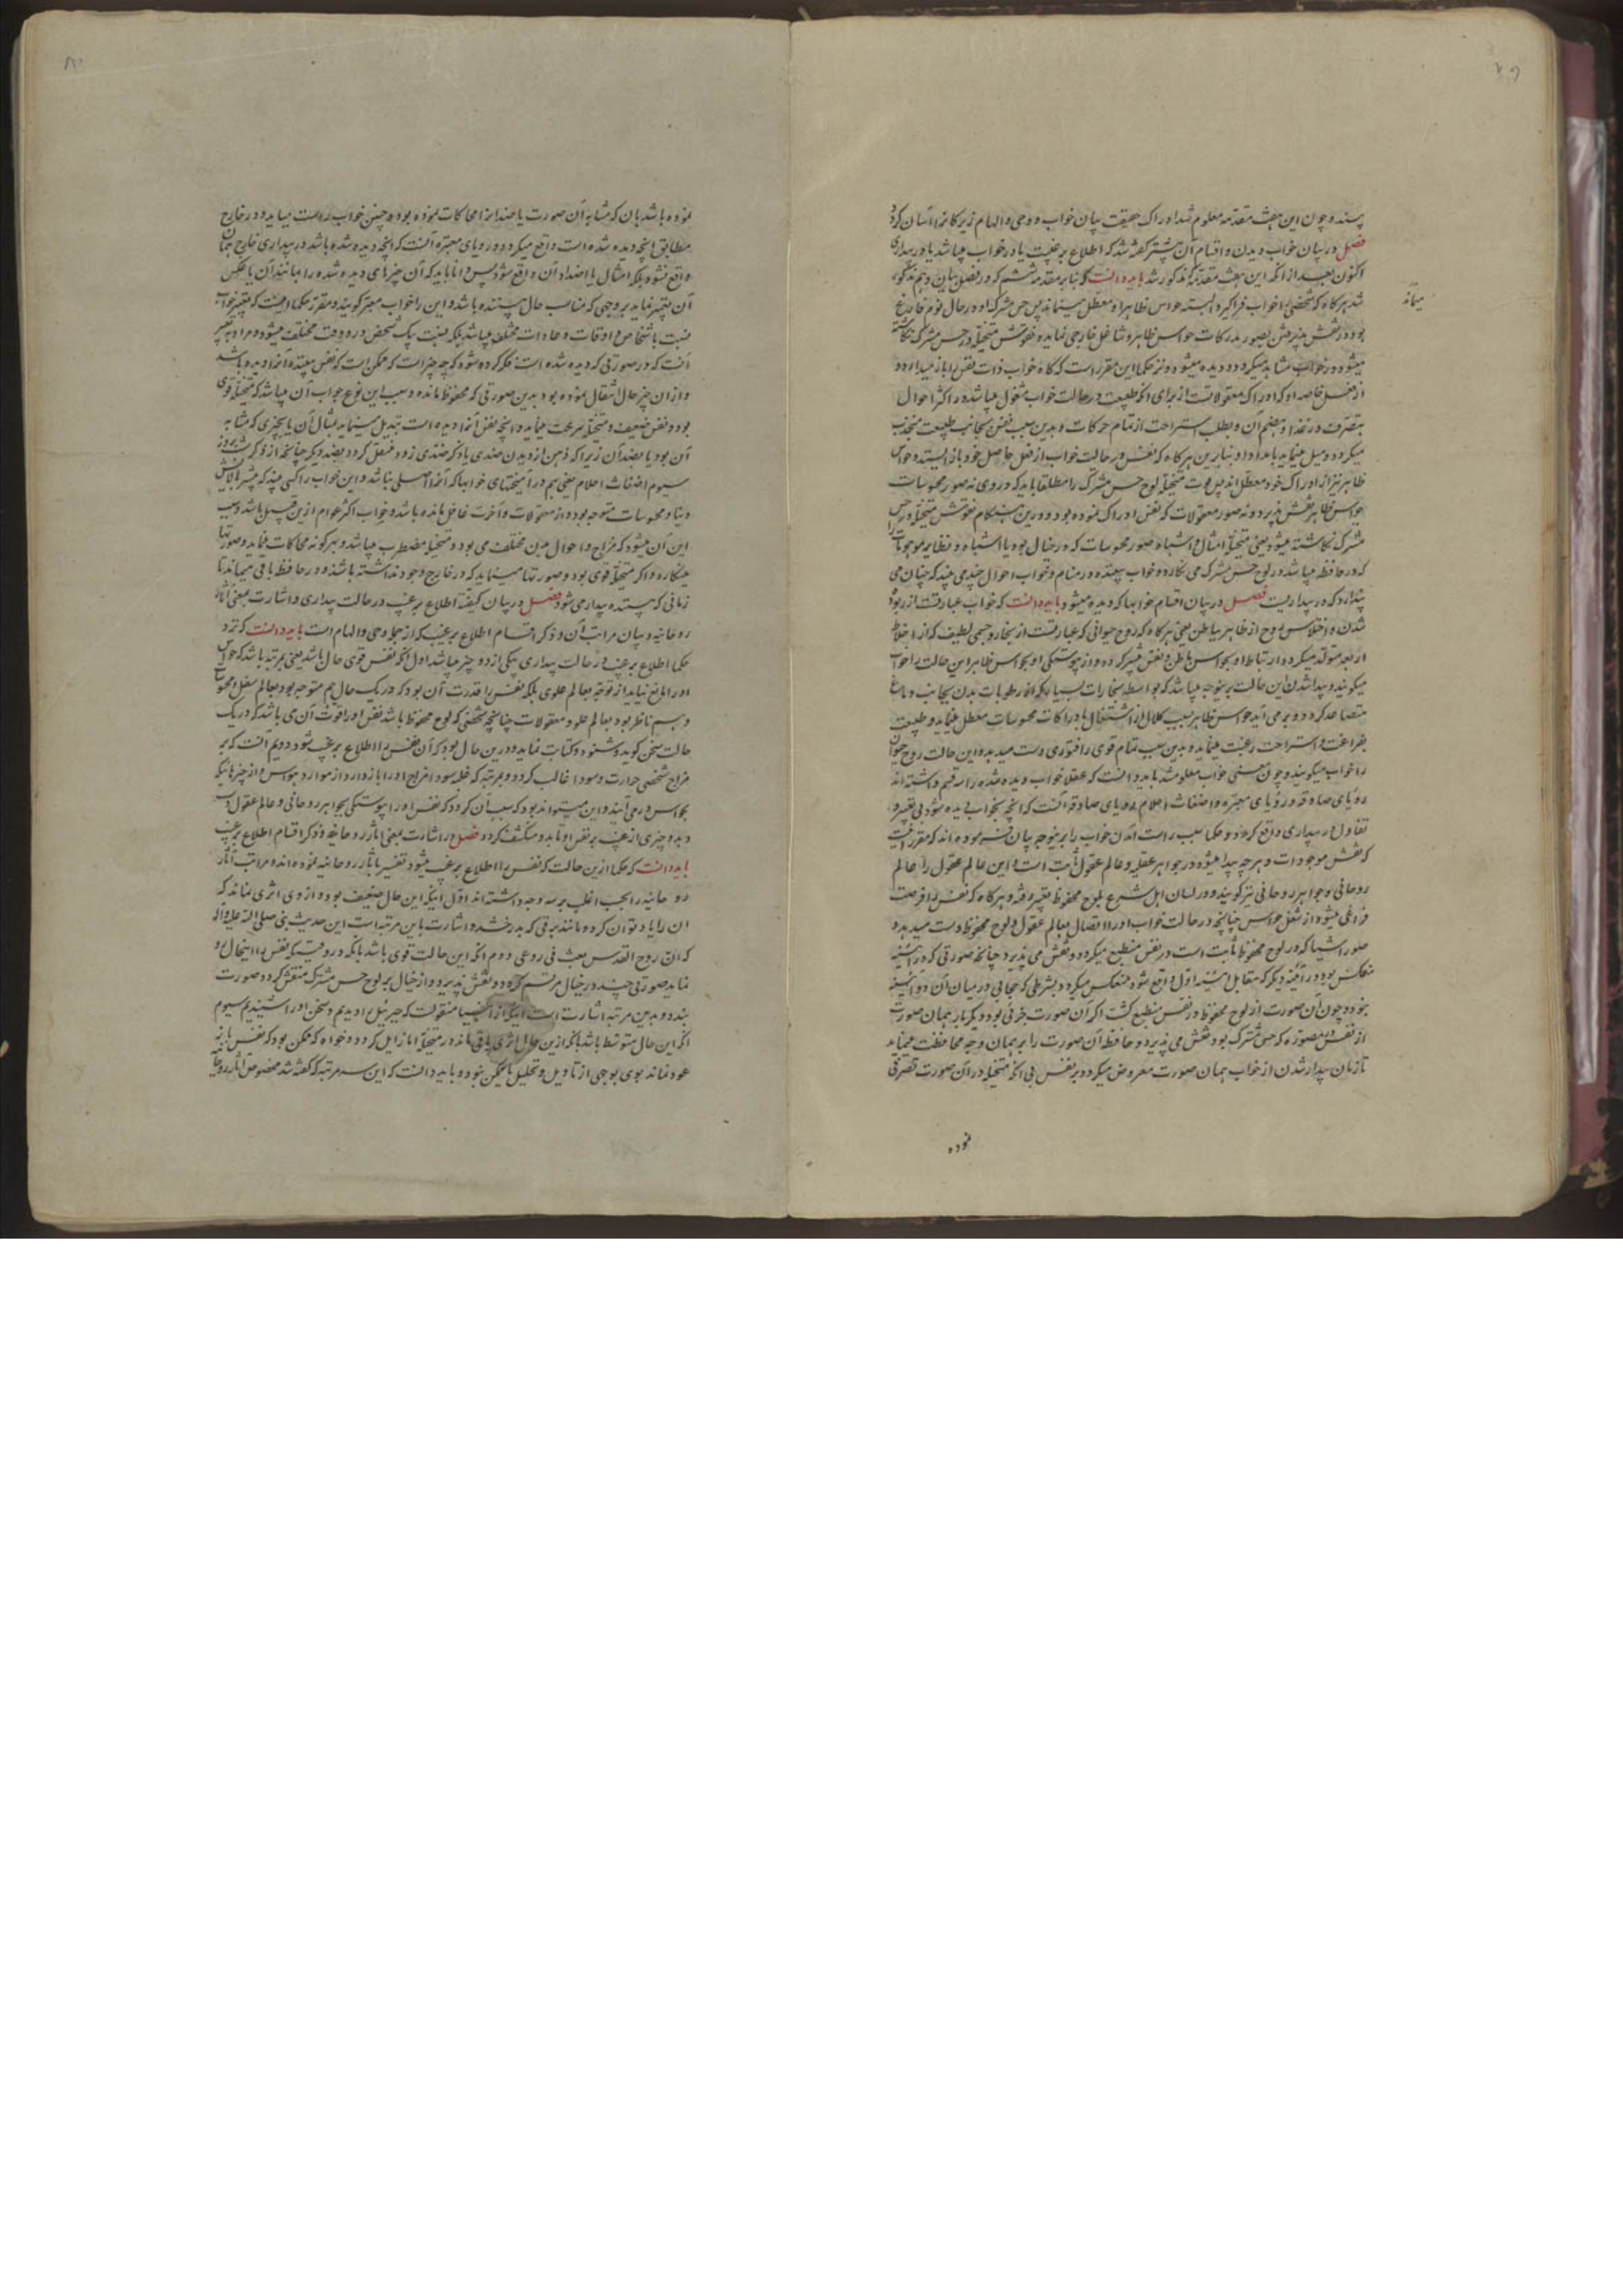 پسند و چون این هشت مقدمه معلوم شد ادراک حقیقت بیان خواب و وحی و الهام زیرکانرا آسان گردد
فصل در بیان خواب دیدن و اقسام آن پیشتر گفته شد که اطلاع بر غیب یا در خواب میباشد یا در بیداری
اکنون بعد از آنکه این هشت مقدمه مذکور شد باید دانست که بنا بر مقدمه ششم که در فصل بیان
شد هرگاه که شخصی را خواب فراگیرد البته حواس ظاهر او معطل میماند پس حس مشترک او در حال نوم فارغ
بود و نقش پذیرفتن بصور مدرکات حواس ظاهر و شاغل خارجی نماید و نقوش متخیله در حس مشترک نگاشته
میشود و در خواب مشاهد میگردد و دیده میشود و نزد حکما این مقرر است که گاه خواب ذات نفس را باز میدارد
از فعل خاصه او که ادراک معقولاتست از برای آنکه طبیعت در حالت خواب مشغول میباشد در اکثر احوال
بتصرف در غذا و هضم آن و بطلب استراحت از تمام حرکات و بدین سبب نفس بجانب طبیعت منجذب
میگردد و میل مینماید بامداد او بنابرین هرگاه که نفس در حالت خواب از فعل خاص خود باز ایستد و حواس
ظاهر نیز از ادراک خود معطل اند پس قوت متخیله لوح حس مشترک را مطلقا یابد که در وی نه صور محسوسات
حواس ظاهر نقش پذیرد و نه صور معقولات که نفس ادراک نموده بود و درین هنگام نقوش متخیله در حس
مشترک نگاشته میشود یعنی متخیله امثال و اشباه صور محسوسات که در خیال بود یا اشباه و نظایر موهومات را
که در حافظه میباشد در لوح حس مشترک می نگارد و خواب بیننده در منام و خواب احوال چند می بیند که چنان می
پندارد که در بیداریست فصل در بیان اقسام خوابها که دیده میشود باید دانست که خواب عبارتست از ربوده
شدن و اختلاس روح از ظاهر بباطن یعنی هرگاه که روح حیوانی که عبارتست از بخار و جسمی لطیف که از اخلاط
اربعه متولد میگردد ارتباط او بحواس باطن و نفس بیشتر گردد و از پیوستگی او بحواس ظاهر این حالت را خواب
میگویند و پیدا شدن این حالت برینوجه میباشد که بواسطه بخارات بسیار که از رطوبات بدن بجانب دماغ
متصاعد گردد و برمی آید حواس ظاهر بسبب کلال از اشتغال بادراکات محسوسات معطل مینماید و طبیعت
بفراغت و استراحت رغبت مینماید و بدین سبب تمام قوی را فتوری دست میدهد و این حالت روح حیوانی
را خواب میگویند و چون معنی خواب معلوم شد باید دانست که عقلا خواب دیده شده را سه قسم داشته اند
رویای صادقه و رویای معبره و اضغاث احلام رویای صادقه آنست که آنچه بخواب دیده شود بی تغییر و
تفاوت در بیداری واقع گردد و حکما سبب راست آمدن خواب را برینوجه بیان فرموده اند که مقرر است
که نقش موجودات و هر چه پیدا میشود در جواهر عقلیه و عالم عقول ثابت است و این عالم عقول را عالم
روحانی و جواهر روحانی نیز گویند و در لسان اهل شرع بلوح محفوظ تعبیر رفته و هرگاه که نفس را فرصت
فراغی میشود از شغل حواس چنانچه در حالت خواب او را اتصال بعالم عقول و لوح محفوظ دست میدهد و
صور اشیا که در لوح محفوظ ثابت است در نفس منطبع میگردد و نقش می پذیرد چنانچه صورتی که در آینه
منعکس بود در آینه دیگر که مقابل آینه اول واقع شود منعکس میگردد بشرطی که حجابی در میان آن دو آینه
نبود و چون آن صورت از لوح محفوظ در نفس منطبع گشت اگر آن صورت جزئی بود دیگر بار بهمان صورت
از نفس مصوره که حس مشترک بود نقش می پذیرد و حافظه آن صورت را بر همان وجه محافظت مینماید
تا زمان بیدار شدن از خواب همان صورت معروض میگردد بر نفس بی آنکه متخیله در آن صورت تصرفی
نموده
نموده باشد بآن که مشابه آن صورت یا ضد آنرا محاکات نموده بود و چنین خواب راست میآید و در خارج
مطابق آنچه دیده شده است واقع میگردد و رویای معبره آنست که آنچه دیده شده باشد در بیداری خارج همان
واقع نشود بلکه امثال یا اضداد آن واقع شود پس دانا باید که آن چیزهای دیده شده را بمانند آن یا عکس
آن تعبیر نماید بر وجهی که مناسب حال بیننده باشد و این را خواب معبر گویند و مقرر حکما اینست که تعبیر خواب
نسبت باشخاص و اوقات و عادات مختلف میباشد بلکه نسبت بیک شخص در دو وقت مختلف میشود و مراد تعبیر
آنست که در صورتی که دیده شده است فکر کرده شود که چه چیز است که ممکن است که نفس بیننده آنرا دیده باشد
و از آن چیز حال انتقال نموده بود بدین صورتی که محفوظ مانده و سبب این نوع خواب آن میباشد که متخیله قوی
بود و نفس ضعیف و متخیله سرعت مینماید و آنچه نفس آنرا دیده است تبدیل مینماید بمثال آن یا بچیزی که مشابه
آن بود یا بضد آن زیرا که ذهن از دیدن ضدی یا ذکر ضدی زود منتقل گردد بضد دیگر چنانچه از ذکر شب بروز
سیوم اضغاث احلام یعنی بهم درآمیختهای خوابها که آنرا اصلی نباشد و این خواب را کسی بیند که بیشتر بآلایش
دنیا و محسوسات متوجه بود و از معقولات و آخرت غافل مانده باشد و خواب اکثر عوام ازین قبیل باشد و سبب
این آن میشود که مزاج و احوال بدن مختلف می بود و متخیله مضطرب میباشد و هر گونه محاکات مینماید و صورتها
مینگارد و اگر متخیله قوی بود و صورتها مینماید که در خارج وجود نداشته باشد و در حافظه باقی میماند تا
زمانی که بیننده بیدار می شود فصل در بیان کیفیت اطلاع بر غیب در حالت بیداری و اشارت بمعنی آثار
روحانیه و بیان مراتب آن و ذکر اقسام اطلاع بر غیب که از جمله وحی و الهام است باید دانست که نزد
حکما اطلاع بر غیب در حالت بیداری بیکی از دو چیز میباشد اول آنکه نفس قوی حال باشد یعنی بمرتبه باشد که حواس
او را مانع نیاید از توجه بعالم علوی بلکه نفس را قدرت آن بود که در یک حال هم متوجه بود بعالم سفلی و محسوسات
و هم ناظر بود بعالم علو و معقولات چنانچه شخصی که لوح محفوظ باشد نفس او را قوت آن می باشد که در یک
حالت سخن گوید و شنود و کتابت نماید و درین حال بود که آن نفس را اطلاع بر غیب شود دویم آنست که بر
مزاج شخصی حرارت و سودا غالب گردد و بمرتبه که غلبه سودا مزاج او را باز دارد از موارد حواس و از چیزهائیکه
بحواس درمی آیند و این میتواند بود که سبب آن گردد که نفس او را پیوستگی بجواهر روحانی و عالم عقول دست
دهد و چیزی از غیب بر نفس او تابد و منکشف گردد فصل در اشارت بمعنی آثار روحانیه و ذکر اقسام اطلاع بر غیب
باید دانست که حکما ازین حالت که نفس را اطلاع بر غیب میشود تعبیر بآثار روحانیه نموده اند و مراتب آثار
روحانیه را بحسب اغلب بر سه وجه داشته اند اول آنکه این حال ضعیف بود و از وی اثری نماند که
آن را یاد توان کرد مانند برقی که بدرخشد و اشارت باین مرتبه است این حدیث نبی صلی الله علیه و آله
که ان روح القدس نفث فی روعی دوم آنکه این حالت قوی باشد بآنکه در وقتیکه نفس را اینحال رو
نماید صورتی چند در خیال مرتسم گردد و نقش پذیرد و از خیال بر لوح حس مشترک منتقش گردد و صورت
بندد و بدین مرتبه اشارت است آنکه از انبیا منقولست که جبرئیل را دیدیم و سخن او را شنیدیم سیوم
آنکه این حال متوسط باشد بآنکه ازین حال اثری باقی ماند در متخیله اما زایل گردد و خواه که ممکن بود که نفس باز
عود نماید بوی بوجهی از تاویل و تحلیل یا ممکن نبود و باید دانست که این سه مرتبه که گفته شد مخصوص آثار روحانیه